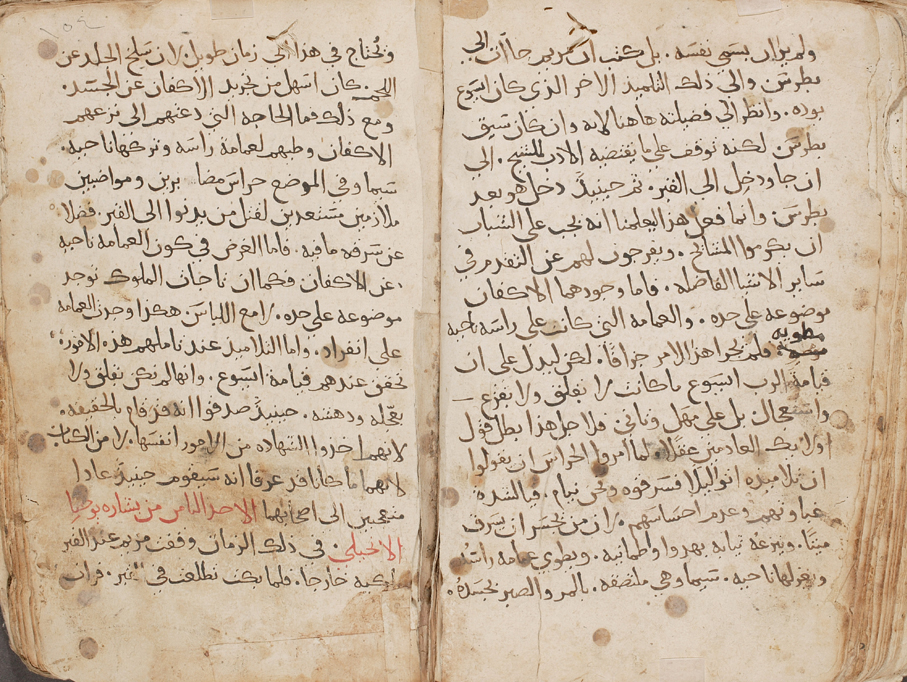 ولم يران يسمي نفسه. بل كتب ان مريم جاات الي
بطرس. والي ذلك التلميذ الاخر الذي كان ايسوع
يوده. وانظر الي فضيلته هاهنا لانه وان كان سبق
بطرس. لكنه توقف علي ما يقتضيه الادب المسيح. الي
ان جا ودخل الي القبر. ثم حينيذ دخل هو بعد
بطرس. وانما فعل هذا ليعلمنا انه يجب علي الشباب
ان يكرموا المشايخ. ويفرجون لهم عن التقدم في
ساير الاشيا الفاضله. فاما وجودهما الاكفان
موضوعه علي حده. والعمامه التي كانت علي راسه ناحيه
مطويه فلم يجرا هذا الامر جزافا. لكن ليدل علي ان
قيامة الرب ايسوع ما كانت لا بقلق ولا بفزع
واستعجال. بل علي مهل وتاني. فلاجل هذا بطل قول
اولايك العادمين عقلا. لما امروا الحراس ان يقولوا
ان تلاميذه اتوا ليلا فسرقوه ونحن نيام. فيا لشدة
غباوتهم وعدم احساسهم. لان من يجسر ان يسرق
ميتا. وينزع ثيابه بهدو وطمانيه. ويطوي عمامه راسه
ويعزلها ناحيه. سيما وهي ملتصقه. بالمر والصبر بجسده.
ويحتاج في هذا الي زمان طويل. لان سلخ الجلد عن
اللحم. كان اسهل من تجريد الاكفان عن الجسد.
ومع ذلك فما الحاجه التي دعتهم الي نزعهم
الاكفان وطيهم لعمامة راسه وتركها ناحيه.
سيما وفي الموضع حراس ومواضبين
ملازمين مستعدين لقتل من يدنوا الي القبر. فضلا
عن سرقه ما فيه. فاما الغرض في كون العمامه ناحيه
عن الاكفان فكما ان تاجات الملوك توجد
موضوعه علي حده. لا مع اللباس هكذا وجدت العمامه
علي انفراد. واما التلاميذ عند تاملهم هذه الامور
تحقق عندهم قيامة ايسوع. وانها لم تكن بقلق ولا
بعجله ودهشه. حينيذ صدقوا انه قد قام بالحقيقه.
لانهما اخذوا الشهاده من الامور انفسها. لا من الكتاب
لانهما ما كانا قد عرفا انه سيقوم حينيذ عادا
متعجبين الي اصحابهما الاحد الثامن من بشاره يوحنا
الانجيلي. في ذلك الزمان وقفت مريم عند القبر
باكيه خارجا. فلما بكت تطلعت في القبر. فرات